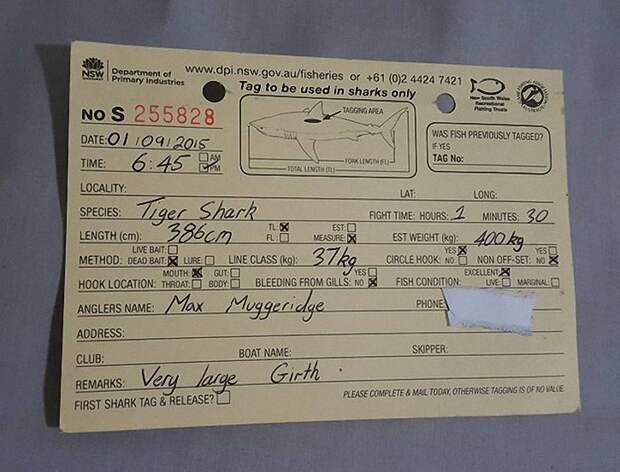 NSW Department of Primary Industries www.dpi.nsw.gov.au/fisheries or +61 (0)2 4424 7421
New South Wales Recreational Fishing Trusts
Tag to be used in sharks only
No S 255828
TAGGING AREA
FORK LENGTH (FL)
TOTAL LENGTH (TL)
WAS FISH PREVIOUSLY TAGGED?
IF YES
TAG No:
DATE: 01/09/2015
TIME: 6:45 AM PM
LOCALITY: LAT: LONG:
SPECIES: Tiger Shark FIGHT TIME: HOURS: 1 MINUTES: 30
LENGTH (cm): 386cm TL: FL: EST: MEASURE: EST WEIGHT (kg): 400kg
METHOD: LIVE BAIT: DEAD BAIT: LURE: LINE CLASS (kg): 37kg CIRCLE HOOK: YES NO NON OFF-SET: YES NO
HOOK LOCATION: MOUTH: GUT: THROAT: BODY: BLEEDING FROM GILLS: YES NO FISH CONDITION: EXCELLENT: LIVE: MARGINAL:
ANGLERS NAME: Max Muggeridge PHONE
ADDRESS:
CLUB: BOAT NAME: SKIPPER:
REMARKS: Very large Girth.
FIRST SHARK TAG & RELEASE? PLEASE COMPLETE & MAIL TODAY, OTHERWISE TAGGING IS OF NO VALUE